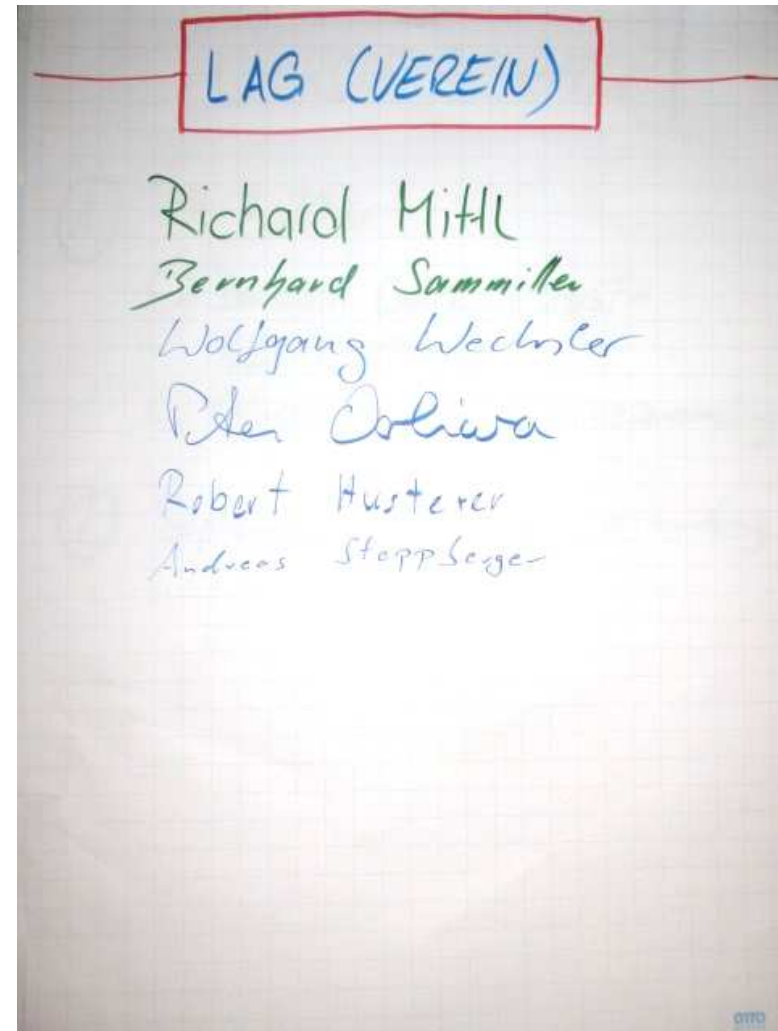 LAG (VEREIN)
Richard Mittl
Bernhard Sammiller
Wolfgang Wechsler
Peter
Robert Husterer
Andreas Stoppberger
OTTO